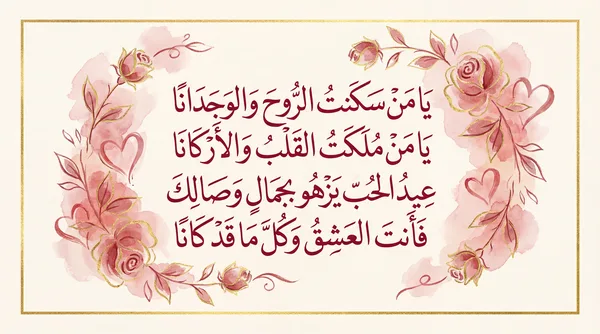 يَا مَنْ سَكَنتُ الرُّوحَ وَالوَجَدَانًا
يَا مَنْ مُلَكَتُ القَلْبُ وَالأَرْكَانَا
عِيدُ الحُبّ يَزْهُو بجَمَالٍ وَصَالِكَ
فَأَنتَ العَشِقُ وَكُلَّ مَا قَدْ كَانًا